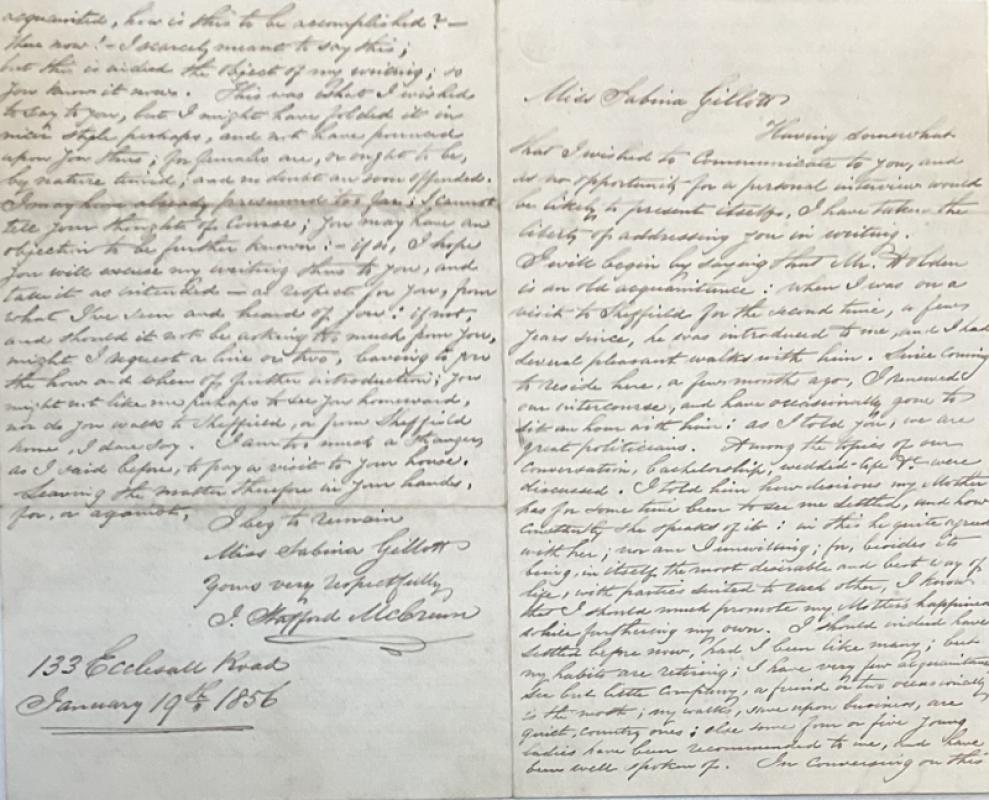 Miss Sabina Gillott
Having somewhat
that I wished to Communicate to you, and
as no opportunity for a personal interview would
be likely to present itself, I have taken the
liberty of addressing you in writing.
I will begin by saying that Mr. Holden
is an old acquaintance: when I was on a
visit to Sheffield for the second time, a few
years since, he was introduced to me, and I had
several pleasant walks with him. Since coming
to reside here, a few months ago, I renewed
our intercourse, and have occasionally gone to
sit an hour with him: as I told you, we are
great politicians. Among the topics of our
Conversation, bachelorship, wedded-life &c were
discussed. I told him how desirous my Mother
has for some time been to see me settled, and how
constantly she speaks of it: in this he quite agreed
with her; nor am I unwilling; for, besides its
being, in itself, the most desirable and best way of
life, with parties suited to each other, I know
that I should much promote my Mother's happiness
while furthering my own. I should indeed have
settled before now, had I been like many; but
my habits are retiring; I have very few acquaintance
see but little Company, a friend or two occasionally
is the most; my walks, save upon business, are
quiet, country ones; else some four or five young
ladies have been recommended to me, and have
been well spoken of. In Conversing on this
acquainted, how is this to be accomplished? —
There now! - I scarcely meant to say this;
but this is indeed the object of my writing; so
you know it now. This was what I wished
to say to you, but I might have folded it in
nicer style perhaps, and not have pounced
upon you thus; for females are, or ought to be,
by nature timid; and no doubt are soon offended.
I may have already presumed too far; I cannot
tell your thoughts of Course; you may have an
objection to be further known: - if so, I hope
you will excuse my writing thus to you, and
take it as intended — as respect for you, from
what I've seen and heard of you: if not,
and should it not be asking too much from you,
might I request a line or two, leaving to you
the how and when of further introduction; you
might not like me perhaps to see you homeward,
nor do you walk to Sheffield, or from Sheffield
home, I dare say. I am too much a stranger
as I said before, to pay a visit to your house.
Leaving the matter therefore in your hands,
for, or against,
I beg to remain
Miss Sabina Gillott
Yours very respectfully
J. Stafford
133 Ecclesall Road
January 19th 1856